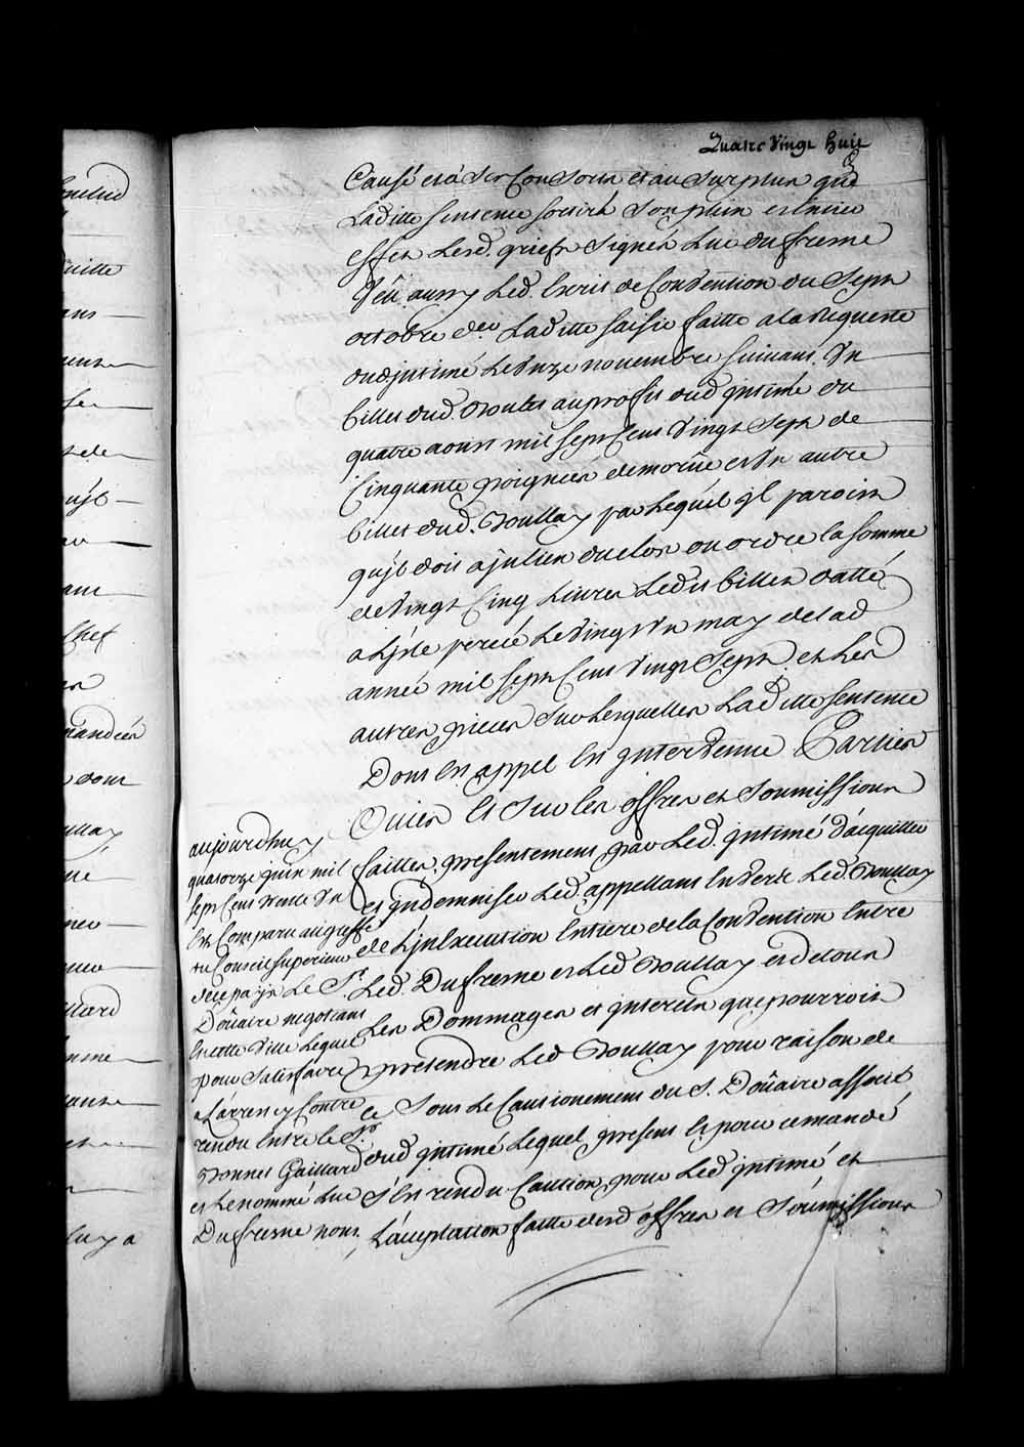 Quatre Vingt huit
Causé et à ses Consorts et au surplus que
Laditte sentence sortira son plein et entier
effet Lesd. griefs signés Luc dufresne
Veu aussy Led. Ecrit de Convention du Sept
octobre der. Laditte saisie faitte a la Requeste
dud jntimé Le Onze novembre suivant. Un
billet dud. Boullay au proffit dud jntimé du
quatre aoust mil sept Cent Vingt Sept de
Cinquante poignées de morüe et Un autre
billet dud. Boullay par Lequel jl paroist
qu'jl doit a julien duclos ou ordre la somme
de Vingt Cinq Livres Ledit billet datté
a L'jsle percée Le Vingt Un may de lad
année mil sept Cent Vingt Sept. et Les
autres pieces sur Lesquelles Laditte sentence
Dont En appel Est jntervenue Parties
Ouies Et Sur les offres et Soumissions
faittes presentement par Led. jntimé d'acquitter
et jndemniser Led. appellant Envers Led. Boullay
de L'jnExecution Entiere de la Convention Entre
Led. Dufresne et Led Boullay et de tous
Les Dommages et jnterets que pourroit
pretendre Led Boullay pour raison de
ce Sous Le Cautionement du S. Doüaire associé
dud jntimé Lequel present Et pour ce mandé
s'Est rendu Caution pour Led jntimé et
L'aceptation faitte desd offres et Soumissions
aujourdhuy
quatorze juin mil
sept Cent trente Un
Est Comparu au greffe
du Conseil superieur
de ce pays Le Sr.
Doüaire negotiant
En cette Ville Lequel
pour Satisfaire
a L'arrest cy Contre
rendu Entre le Sr.
Monnet Gaillard
et Le nommé Luc
Dufresne nous